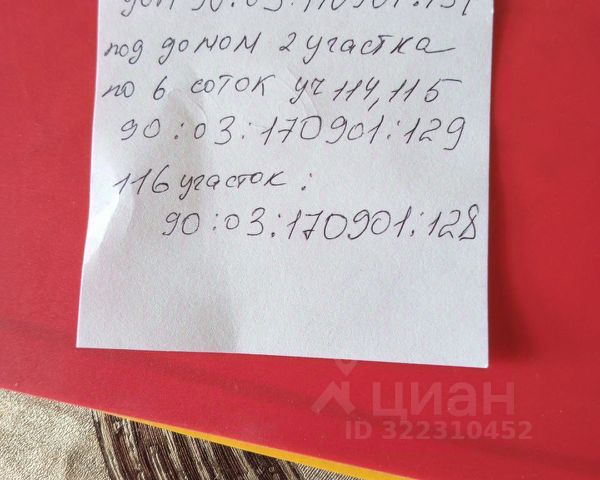 дом 90:03:170901:131
под домом 2 участка
по 6 соток уч 114, 115
90:03:170901:129
116 участок:
90:03:170901:128
циан
ID 322310452